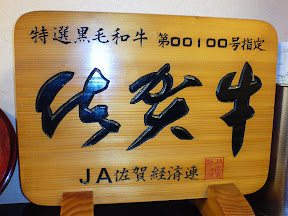 特選黒毛和牛 第00100号指定
佐賀牛
JA佐賀経済連